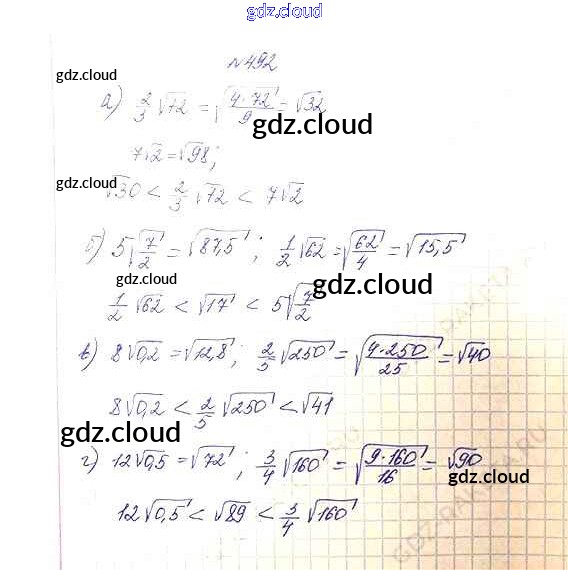 gdz.cloud
№492
gdz.cloud
а) 2/3 √72 = √(4·72/9) = √32
gdz.cloud
7√2 = √98;
gdz.cloud
√30 < 2/3 √72 < 7√2
б) 5√(7/2) = √87,5 ; 1/2 √62 = √(62/4) = √15,5
gdz.cloud
1/2 √62 < √17 < 5√(7/2)
в) 8√0,2 = √12,8 ; 2/5 √250 = √(4·250/25) = √40
gdz.cloud
8√0,2 < 2/5 √250 < √41
gdz.cloud
г) 12√0,5 = √72 ; 3/4 √160 = √(9·160/16) = √90
gdz.cloud
12√0,5 < √89 < 3/4 √160